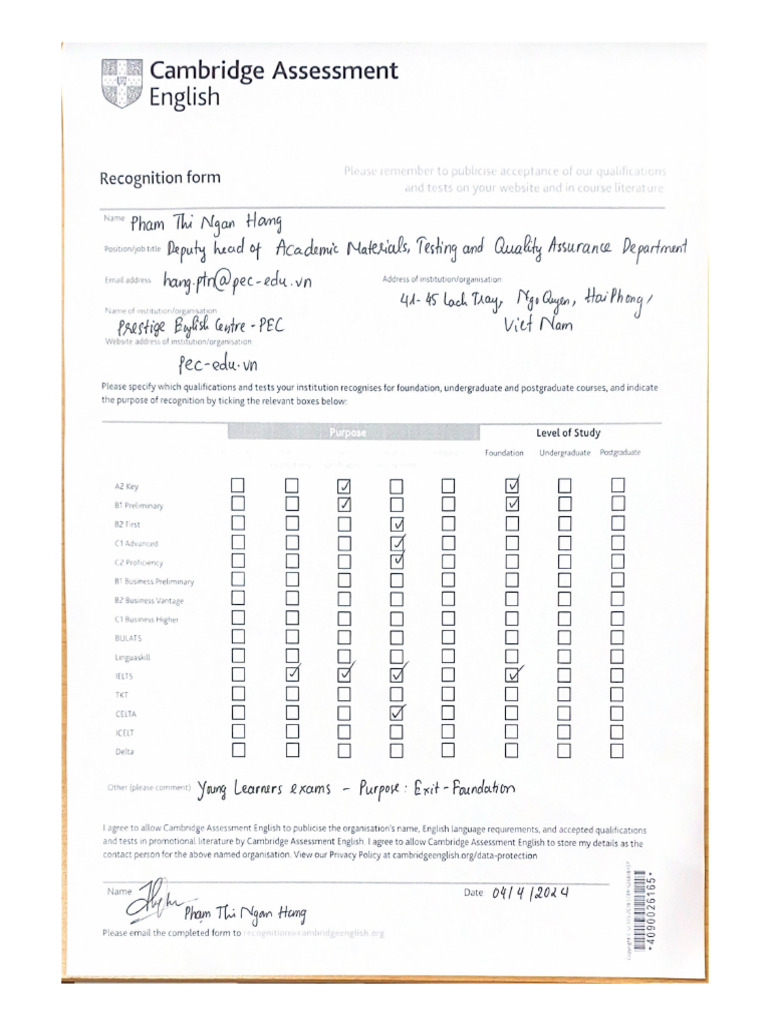 Cambridge Assessment
English
Recognition form
Please remember to publicise acceptance of our qualifications
and tests on your website and in course literature
Name Pham Thi Ngan Hang
Position/job title Deputy head of Academic Materials, Testing and Quality Assurance Department
Email address hang.ptn@pec-edu.vn
Address of institution/organisation
41-45 Lach Tray, Ngo Quyen, Hai Phong,
Viet Nam
Name of institution/organisation
Prestige English Centre - PEC
Website address of institution/organisation
pec-edu.vn
Please specify which qualifications and tests your institution recognises for foundation, undergraduate and postgraduate courses, and indicate
the purpose of recognition by ticking the relevant boxes below:
Purpose Level of Study
Foundation Undergraduate Postgraduate
A2 Key
B1 Preliminary
B2 First
C1 Advanced
C2 Proficiency
B1 Business Preliminary
B2 Business Vantage
C1 Business Higher
BULATS
Linguaskill
IELTS
TKT
CELTA
ICELT
Delta
Other (please comment) Young Learners exams - Purpose: Exit - Foundation
I agree to allow Cambridge Assessment English to publicise the organisation's name, English language requirements, and accepted qualifications
and tests in promotional literature by Cambridge Assessment English. I agree to allow Cambridge Assessment English to store my details as the
contact person for the above named organisation. View our Privacy Policy at cambridgeenglish.org/data-protection
Name Pham Thi Ngan Hang
Date: 04/4/2024
Please email the completed form to recognition@cambridgeenglish.org
*4090026165*